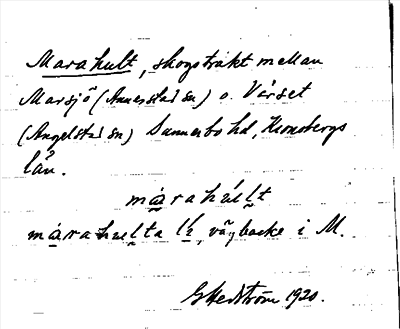 Marahult, skogstrakt mellan
Marsjö (Annerstad sn) o. Värset
(Angelstad sn) Sunnerbo hd, Kronobergs
län.
màrahúlt
màrahulta lí, vägbacke i M.
G Hedström 1920.